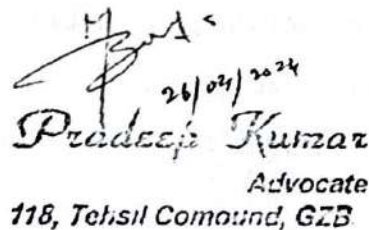 26/04/2024
Pradeep Kumar
Advocate
118, Tehsil Comound, GZB